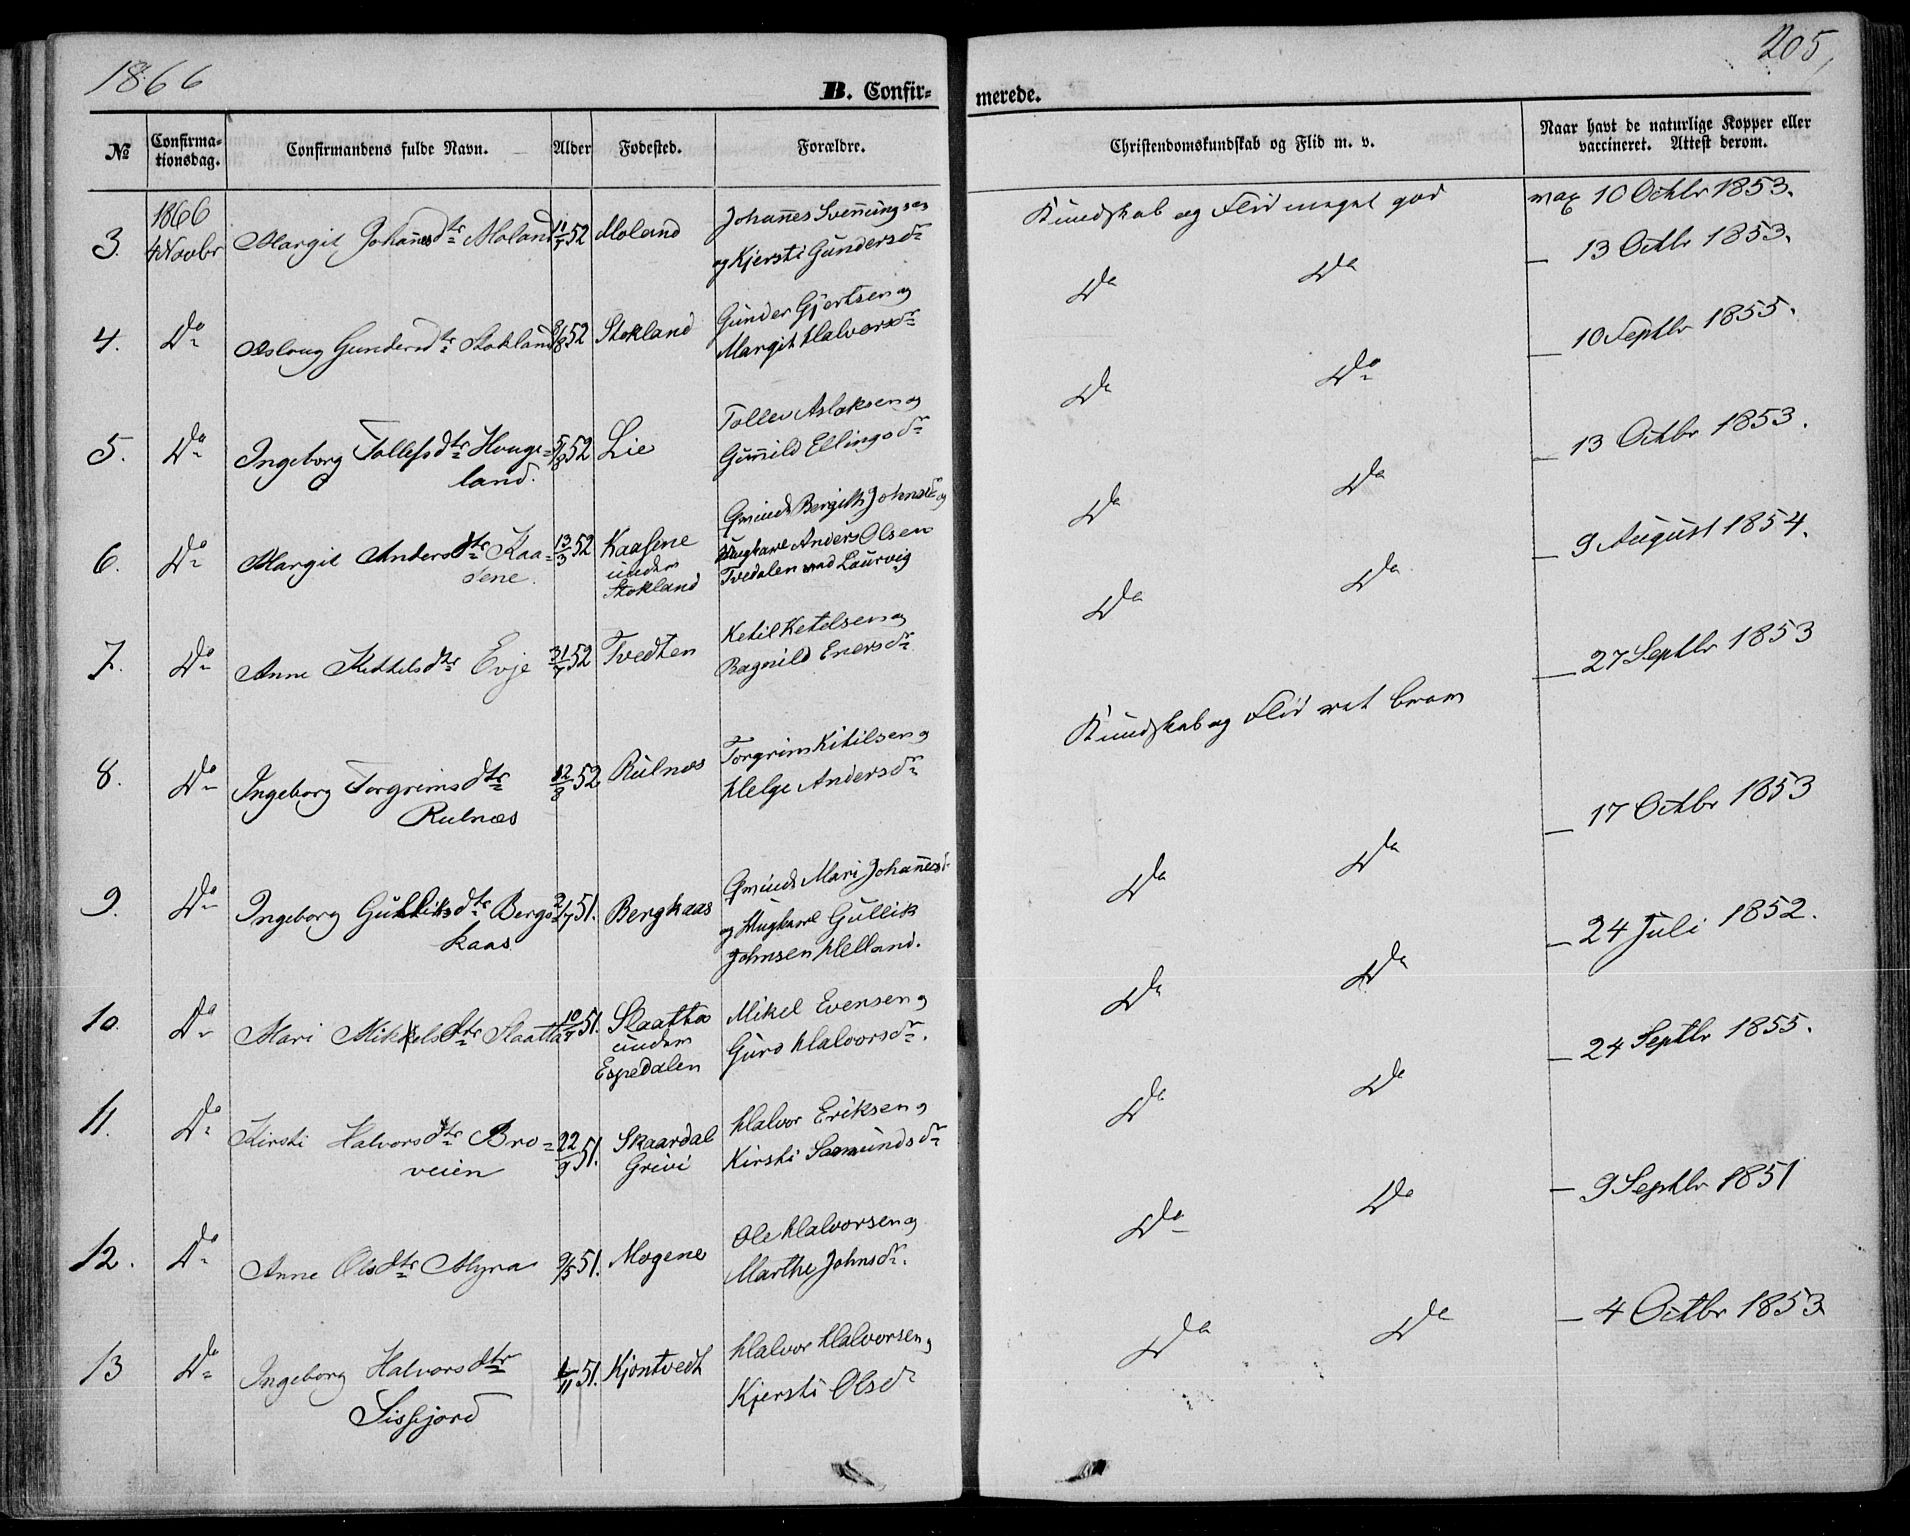 1866
205
B. Confir-
merede.
No
Confirma-
tionsdag.
Confirmandens fulde Navn.
Alder
Fødested.
Forældre.
Christendomskundskab og Flid m. v.
Naar havt de naturlige Kopper eller
vaccineret. Attest derom.
3. 1866 4 Novbr Margit Johannesdtr Moland 11/7 52 Moland
Johannes Svenningsen
og Kjersti Gundersdr
Kundskab og Flid meget god
vax 10 Octbr 1853.
4. Do Aslaug Gundersdtr Stokland 8/8 52 Stokland
Gunder Gjertsen og
Margit Halvorsdr
Do Do
13 Octbr 1853.
5. Do Ingeborg Tollefsdtr Houge=
land.
5/8 52 Lie
Tollev Aslaksen og
Gunnild Ellingsdr
Do Do
10 Septbr 1855.
6. Do Margit Andersdtr Kaa=
sene.
13/3 52 Kaasene
under
Stokland
Gmd Bergith Johnsdr og
Ungkarl Anders Olsen
Tvedalen ved Laurvig
Do Do
13 Octbr 1853.
7. Do Anne Kettelsdtr Evje 31/7 52 Tvedten
Ketil Ketelsen og
Ragnild Enersdr
Do Do
9 August 1854.
8. Do Ingeborg Torgrimsdtr
Rulnæs
12/8 52 Rulnæs
Torgrim Kitilsen og
Helge Andersdr
Kundskab og Flid ret bram
27 Septbr 1853
9. Do Ingeborg Gulliksdtr Berg=
kaas
2/7 51. Bergkaas
Mari Johannesdr
og Ungkarl Gullik
Johnsen Helland.
Do Do
17 Octbr 1853
10. Do Mari Mikkelsdtr Slaatta 10/7 51. Slaatta
under
Espedalen
Mikel Evensen og
Guro Halvorsdr.
Do Do
24 Juli 1852.
11. Do Kirsti Halvorsdtr Bro=
veien
22/9 51. Skaardal
Grivi
Halvor Eriksen og
Kirsti Samundsdr
Do Do
24 Septbr 1855.
12. Do Anne Olsdtr Myra 9/5 51. Mogene
Ole Halvorsen og
Marthe Johnsdr.
Do Do
9 Septbr 1851
13 Do Ingeborg Halvorsdtr
Sisjord
1/11 51. Kjøntvedt
Halvor Halvorsen og
Kjersti Olsdr
Do Do
4 Octbr 1853